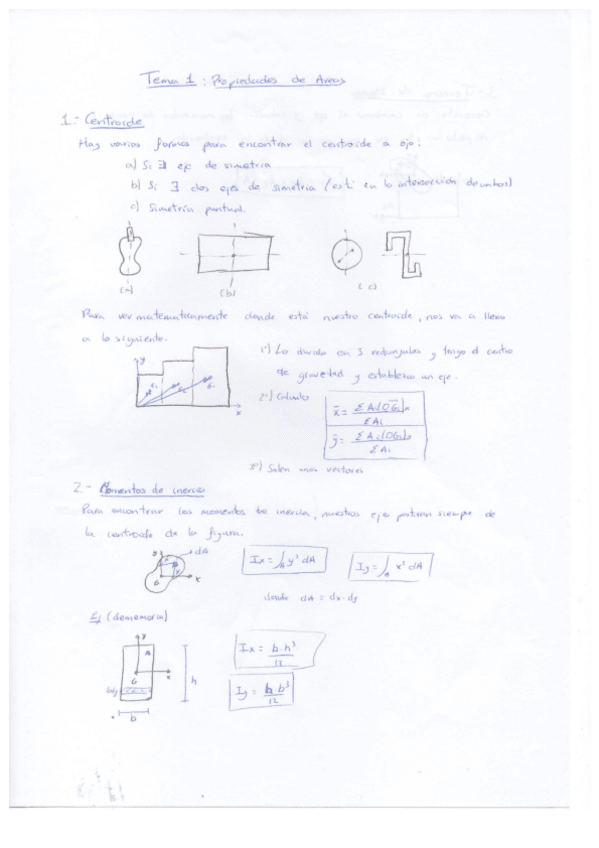 Tema 1: Propiedades de Areas
1.- Centroide
Hay varias formas para encontrar el centroide a ojo:
a) Si ∃ eje de simetría
b) Si ∃ dos ejes de simetría (está en la intersección de ambos)
c) Simetría puntual.
(a) (b) (c)
Para ver matematicamente donde está nuestro centroide, nos va a llevar
a lo siguiente.
1º) Lo divido en 3 rectangulos y tengo el centro
de gravedad y establezco un eje.
y
G₁ G₂ G₃
x
2º) Calculo
x̄ = Σ Ai(OGi)x / ΣAi
ȳ = Σ Ai(OGi)y / ΣAi
3º) Salen unos vectores
2.- Momentos de inercia
Para encontrar los momentos de inercia, nuestros ejes partiran siempre de
la centroide de la figura.
y x dA
y
G x
Ix = ∫A y² dA
Iy = ∫A x² dA
donde dA = dx·dy
Ej (de memoria)
y
A
x
G
h
b
Ix = b·h³ / 12
Iy = h·b³ / 12